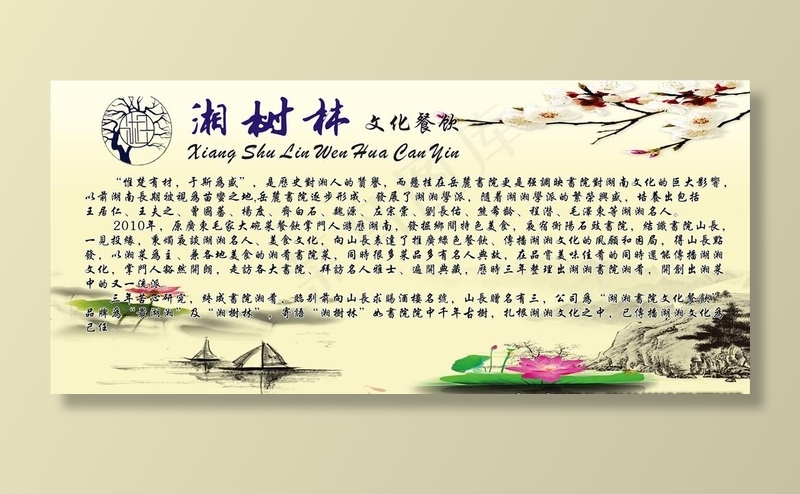 湘树林 文化餐饮
Xiang Shu Lin Wen Hua Can Yin
“惟楚有材，于斯爲盛”，是歷史對湘人的贊譽，而懸挂在岳麓書院更是强調映書院對湖南文化的巨大影響，
以前湖南長期被視爲苗蠻之地,岳麓書院逐步形成、發展了湖湘學派，隨着湖湘學派的繁榮興盛，培養出包括
王居仁、王夫之、曾國蕃、楊度、齊白石、魏源、左宗棠、劉長佑、熊希齡、程潜、毛澤東等湖湘名人。
2010年，原廣東毛家大碗菜餐飲掌門人游歷湖南，發掘鄉間特色美食，夜宿衡陽石鼓書院，結識書院山長，
一見投緣，秉燭夜談湖湘名人、美食文化，向山長表達了推廣綠色餐飲、傳播湖湘文化的夙願和困局，得山長點
發，以湘菜爲主，兼各地美食的湘肴書院菜，同時很多菜品多有名人典故，在品嘗美味佳肴的同時還能傳播湖湘
文化，掌門人豁然開朗，走訪各大書院，拜訪名人雅士、遍閲典藏，歷時三年整理出湖湘書院湘肴，開創出湘菜
中的又一僊派
三年苦心研究，終成書院湘肴、臨别前向山長求賜酒樓名號，山長贈名有三，公司爲“湖湘書院文化餐飲”
品牌爲“黄湖湘”及“湘樹林”，寄語“湘樹林”如書院院中千年古樹，扎根湖湘文化之中，已傳播湖湘文化爲
己任